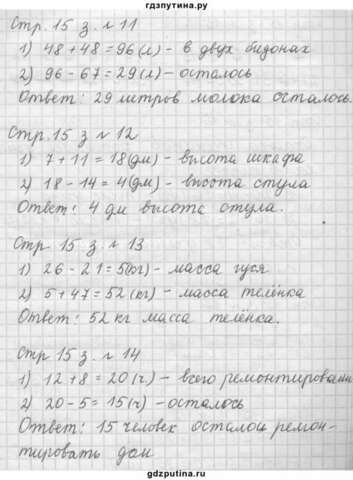 gdzputina.ru
Стр. 15 з. № 11
1) 48 + 48 = 96 (л) - в двух бидонах
2) 96 - 67 = 29 (л) - осталось
Ответ: 29 литров молока осталось.
Стр. 15 з № 12
1) 7 + 11 = 18 (дм) - высота шкафа
2) 18 - 14 = 4 (дм) - высота стула
Ответ: 4 дм высота стула.
Стр 15 з. № 13
1) 26 - 21 = 5 (кг) - масса гуся
2) 5 + 47 = 52 (кг) - масса телёнка
Ответ: 52 кг масса телёнка.
Стр 15 з. № 14
1) 12 + 8 = 20 (ч) - всего ремонтировали
2) 20 - 5 = 15 (ч) - осталось
Ответ: 15 человек осталось ремон-
тировать дом
gdzputina.ru